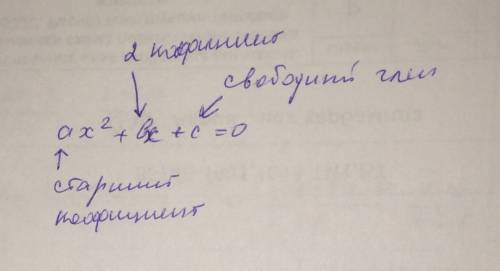 2 коэффициент
свободный член
ax² + bx + c = 0
старший
коэффициент